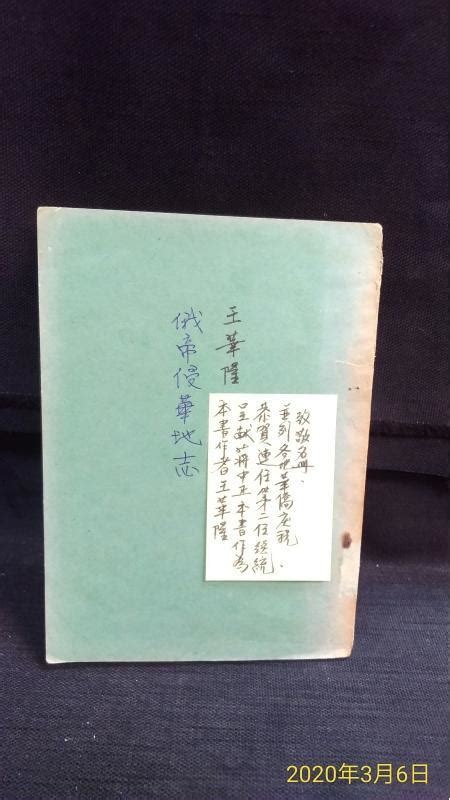 王華隆
俄帝侵華地志
本書作者王華隆
呈献蔣中正本書作為
恭賀連任第二任總統.
並列各地華僑慶祝
致敬名冊.
2020年3月6日